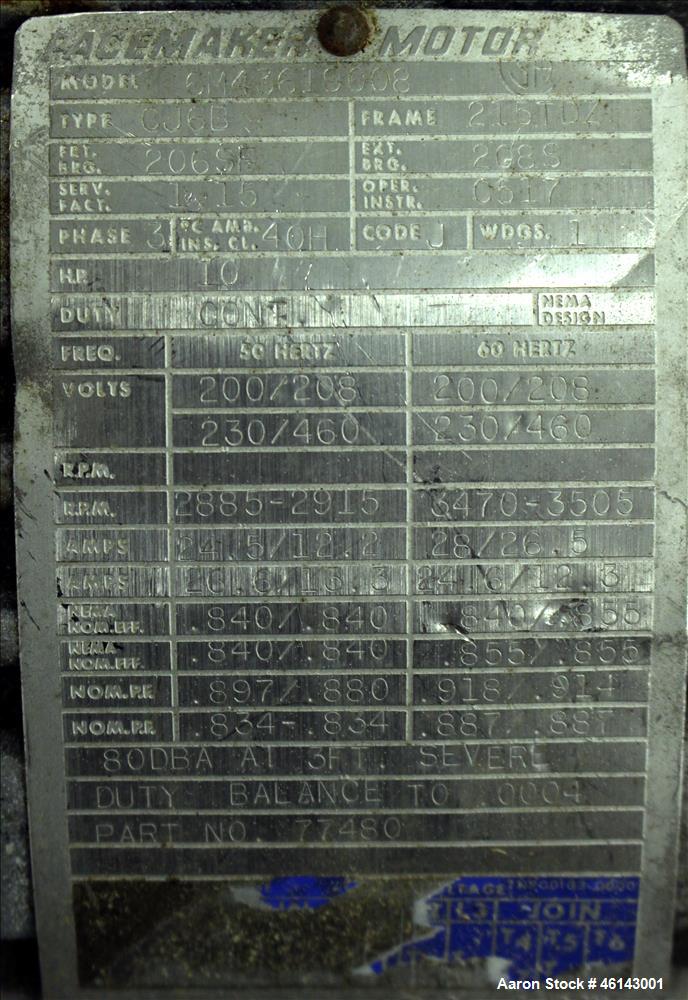 PACEMAKER MOTOR
MODEL 6M43619008
TYPE CJ6B FRAME 215TDZ
FRT. BRG. 206SF EXT. BRG. 208S
SERV. FACT. 1.15 OPER. INSTR. C517
PHASE 3 °C AMB. INS. CL. 40H CODE J WDGS. 1
H.P. 10
DUTY CONT. NEMA DESIGN
FREQ. 50 HERTZ 60 HERTZ
VOLTS 200/208 200/208
230/460 230/460
R.P.M.
R.P.M. 2885-2915 3470-3505
AMPS 24.5/12.2 28/26.5
AMPS 26.6/13.3 24.6/12.3
NEMA NOM.EFF. .840/.840 .840/.855
NEMA NOM.EFF. .840/.840 .855/.855
NOM.P.F. .897/.880 .918/.914
NOM.P.F. .834-.834 .887/.887
80DBA AT 3FT. SEVERE
DUTY BALANCE TO .0004
PART NO. 77480
L3 JOIN
T4 T5 T6
Aaron Stock # 46143001